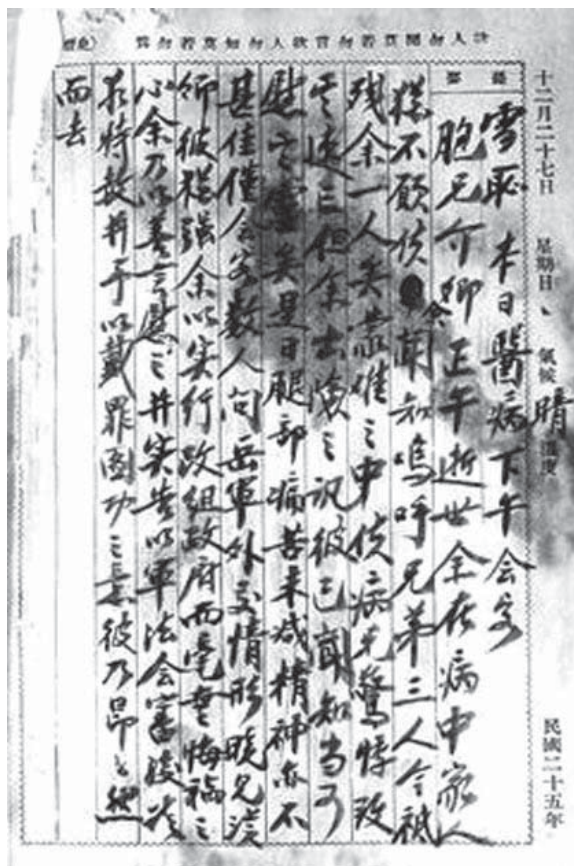 欲人勿聞莫若勿言欲人勿知莫若勿爲
十二月二十七日 星期日 氣候 晴 溫度 民國二十五年
提要
雪恥 本日醫病下午会客
胞兄介卿正午逝世余在病中家人
猶不願使余聞知嗚呼兄弟三人今祇
残余一人矣蒙难之中使病兄驚悸致
其速亡但余出險之訊彼已聞知當可
慰其靈矣是日腿部痛苦未减精神亦不
甚佳僅会客数人問岳軍外交情形晚見漢
卿彼猶强余以实行改组政府而毫無悔禍之
心余乃以善言慰之并实告以軍法会審後請
求特赦并予以戴罪圖功之意彼乃昂昂然
而去